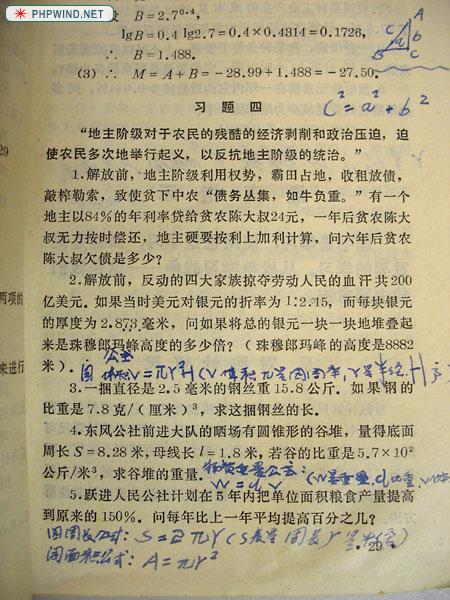 PHPWIND.NET
设 B=2.7⁰·⁴,
lgB=0.4 lg2.7=0.4×0.4314=0.1726,
∴ B=1.488.
(3) ∴ M=A+B=-28.99+1.488=-27.50.
A
C
b
a
B
C
c²=a²+b²
习题四
“地主阶级对于农民的残酷的经济剥削和政治压迫,迫
使农民多次地举行起义,以反抗地主阶级的统治。”
29
1.解放前,地主阶级利用权势,霸田占地,收租放债,
敲榨勒索,致使贫下中农“债务丛集,如牛负重。”有一个
地主以84%的年利率贷给贫农陈大叔24元,一年后贫农陈大
叔无力按时偿还,地主硬要按利上加利计算,问六年后贫农
陈大叔欠债是多少?
2.解放前,反动的四大家族掠夺劳动人民的血汗共200
亿美元。如果当时美元对银元的折率为1:2.15,而每块银元
两项的
的厚度为2.873毫米,问如果将总的银元一块一块地堆叠起
来是珠穆郎玛峰高度的多少倍?(珠穆郎玛峰的高度是8882
米).
来进行
3.一捆直径是2.5毫米的钢丝重15.8公斤.如果钢的
比重是7.8克/(厘米)³,求这捆钢丝的长.
4.东风公社前进大队的晒场有圆锥形的谷堆,量得底面
周长S=8.28米,母线长l=1.8米,若谷的比重是5.7×10²
公斤/米³,求谷堆的重量.
W=dV
5.跃进人民公社计划在5年内把单位面积粮食产量提高
到原来的150%.问每年比上一年平均提高百分之几?
圆周长公式:S=2πr(S表是周长r是半径)
·29·
圆面积公式:A=πr²